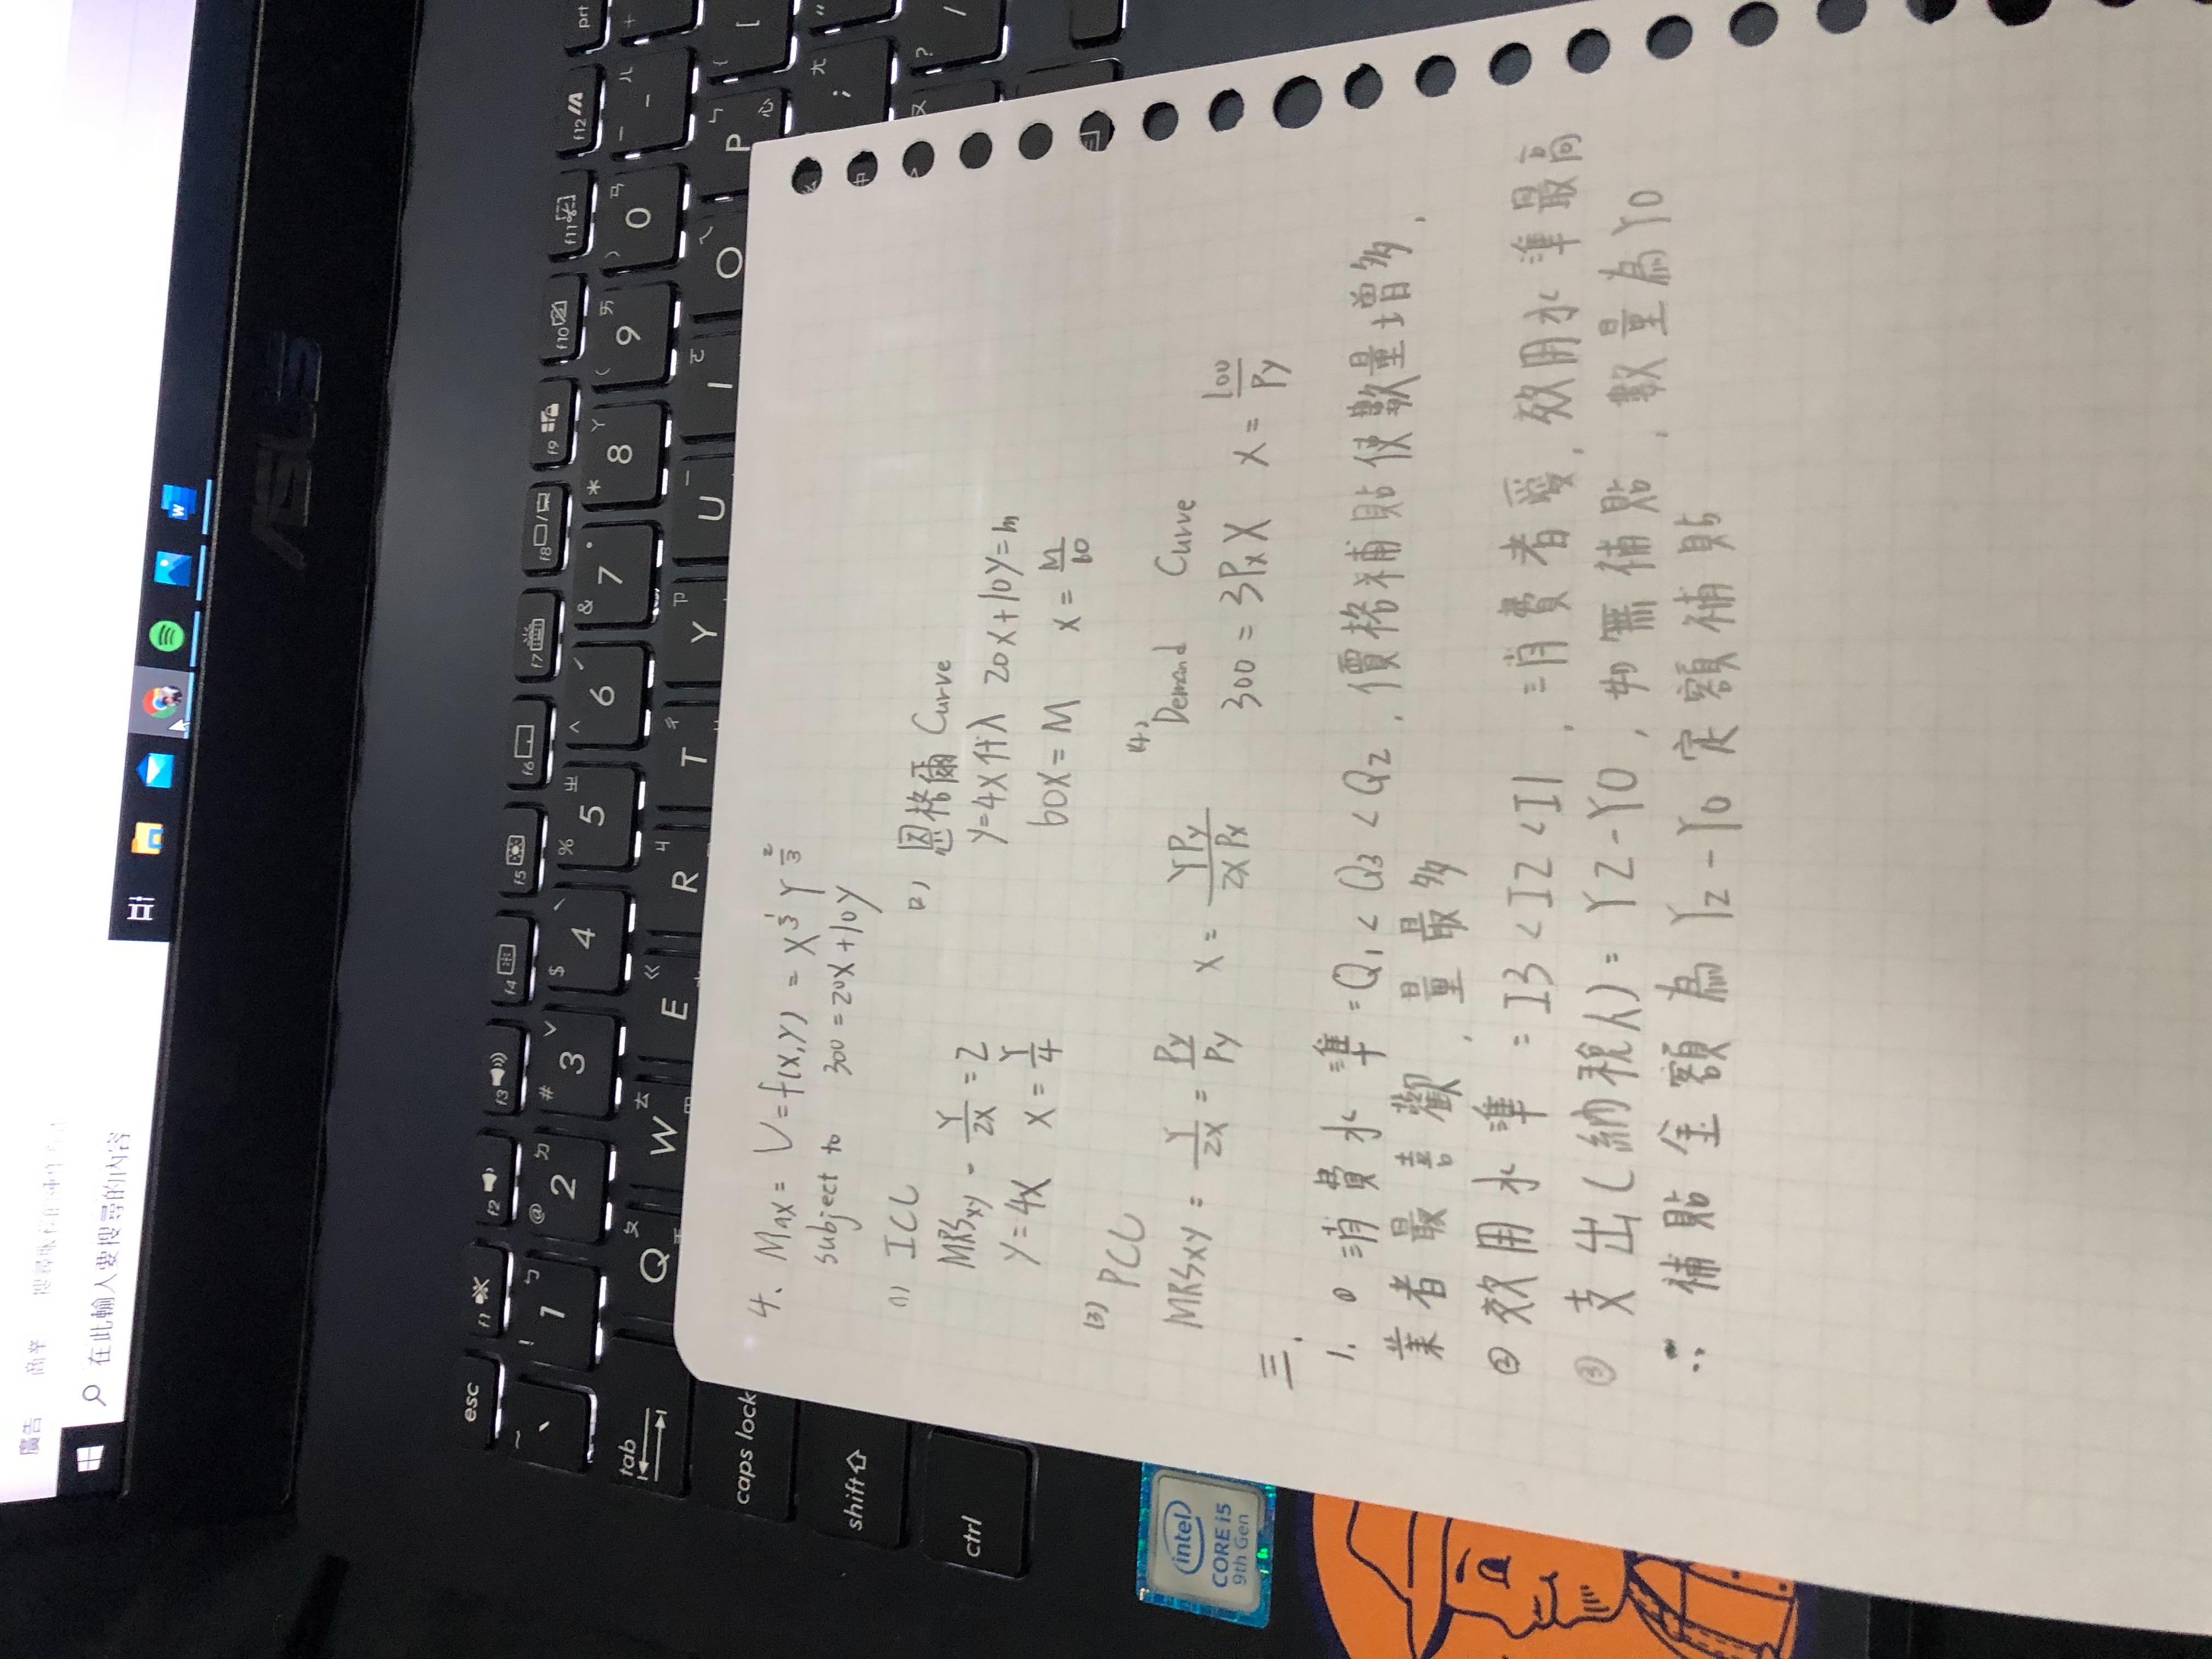 廣告 商業
在此輸入要搜尋的內容
ASUS
esc f1 f2 f3 f4 f5 f6 f7 f8 f9 f10 f11 f12 prt
~ ` ! 1 ㄅ @ 2 ㄉ # 3 ˇ $ 4 ˋ % 5 ㄓ ^ 6 ˊ & 7 ˙ * 8 ㄚ ( 9 ㄞ ) 0 ㄢ - ㄦ +
tab Q ㄆ W ㄊ E ㄍ R ㄐ T ㄔ Y ㄗ U ㄧ I ㄛ O ㄟ P ㄣ 心 { [
caps lock ; ㄤ "
shift ㄡ ? /
ctrl
intel
CORE i5
9th Gen
4. Max = U = f(x,Y) = X^{1/3} Y^{2/3}
subject to 300 = 20X + 10Y
(1) ICC
MRSxy - Y/2X = 2
Y = 4X X = Y/4
(2) 恩格爾 Curve
Y=4X代入 20X+10Y=m
60X = M X = M/60
(3) PCC
MRSxy = Y/2X = Py/Py X = YPy/2XPx
(4) Demand Curve
300 = 3PxX X = 100/Py
三.
1. ① 消費水準 = Q1 < Q3 < Q2 , 價格補貼使數量增多,
業者最喜歡, 量最多
② 效用水準 = I3 < I2 < I1 , 消費者愛, 效用水準最高
③ 支出(納稅人) = Y2 - Y0 , 如無補貼, 數量為Y0
∴ 補貼金額為 Y2 - Y0 定額補貼